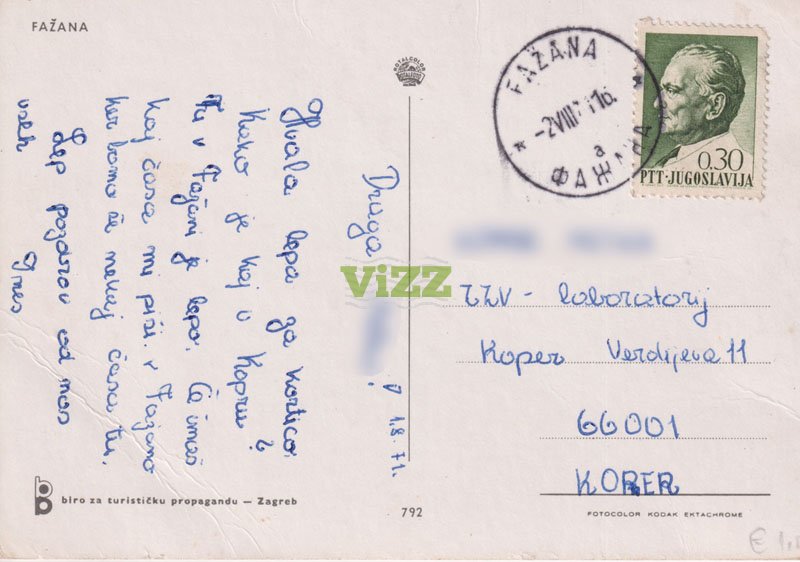 FAŽANA
ROTALCOLOR
FAŽANA
-2 VIII 71 16
a
ФАЖАНА
0.30
PTT·JUGOSLAVIJA
1.8.71.
Draga !
Hvala lepa za kartico.
Kako je kaj v Kopru?
Tu v Fažani je lepo. Če imaš
kaj časa mi piši v Fažano
ker bomo še nekaj časa tu.
Lep pozdrav od nas
vseh
Ines
VIZZ
ZZV - Laboratorij
Koper Verdijeva 11
66001
KOPER
biro za turističku propagandu — Zagreb
792
FOTOCOLOR KODAK EKTACHROME